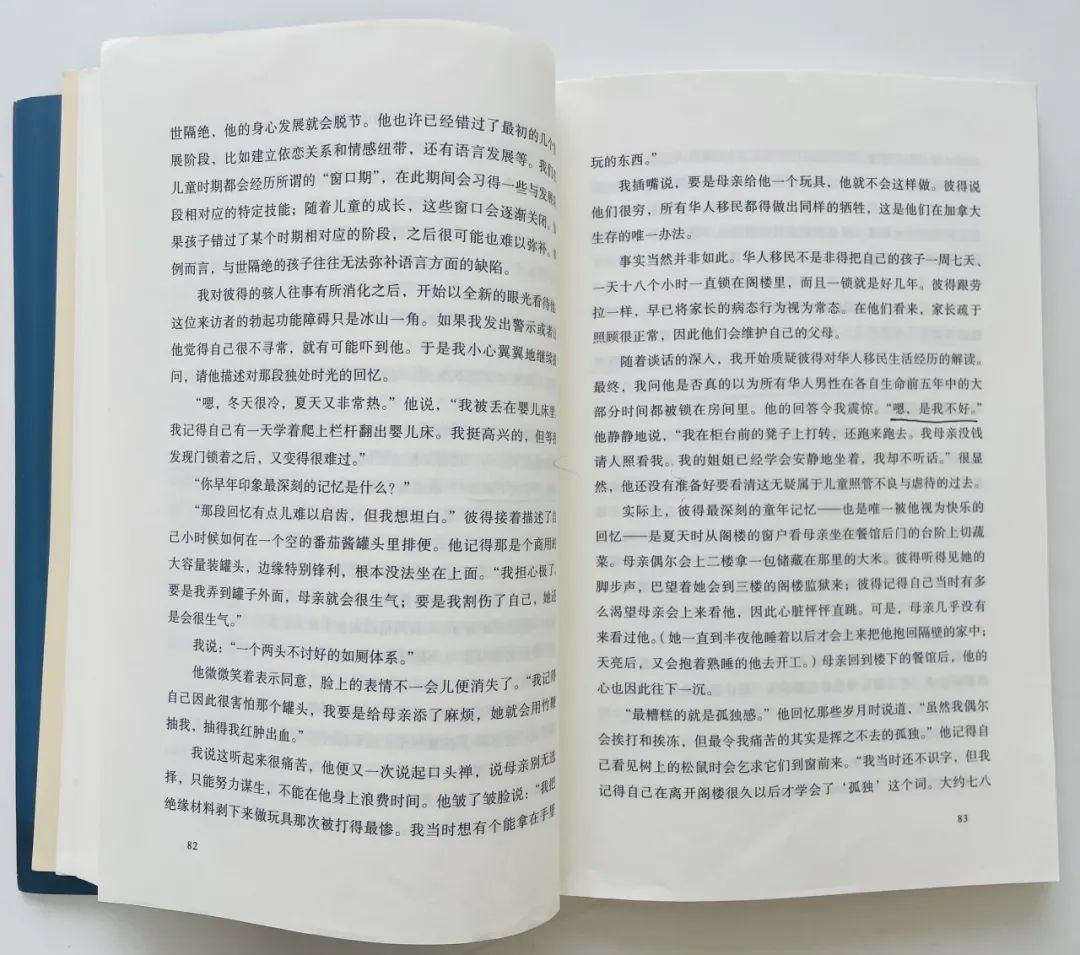 世隔绝，他的身心发展就会脱节。他也许已经错过了最初的几个
展阶段，比如建立依恋关系和情感纽带，还有语言发展等。我们
儿童时期都会经历所谓的“窗口期”，在此期间会习得一些与发展
段相对应的特定技能；随着儿童的成长，这些窗口会逐渐关闭。
果孩子错过了某个时期相对应的阶段，之后很可能也难以弥补。
例而言，与世隔绝的孩子往往无法弥补语言方面的缺陷。
我对彼得的骇人往事有所消化之后，开始以全新的眼光看待他
这位来访者的勃起功能障碍只是冰山一角。如果我发出警示或者
他觉得自己很不寻常，就有可能吓到他。于是我小心翼翼地继续
问，请他描述对那段独处时光的回忆。
“嗯，冬天很冷，夏天又非常热。”他说，“我被丢在婴儿床里
我记得自己有一天学着爬上栏杆翻出婴儿床。我挺高兴的，但等
发现门锁着之后，又变得很难过。”
“你早年印象最深刻的记忆是什么？”
“那段回忆有点儿难以启齿，但我想坦白。”彼得接着描述了自
己小时候如何在一个空的番茄酱罐头里排便。他记得那是个商用的
大容量装罐头，边缘特别锋利，根本没法坐在上面。“我担心极了。
要是我弄到罐子外面，母亲就会很生气；要是我割伤了自己，她还
是会很生气。”
我说：“一个两头不讨好的如厕体系。”
他微微笑着表示同意，脸上的表情不一会儿便消失了。“我记得
自己因此很害怕那个罐头，我要是给母亲添了麻烦，她就会用竹鞭
抽我，抽得我红肿出血。”
我说这听起来很痛苦，他便又一次说起口头禅，说母亲别无选
择，只能努力谋生，不能在他身上浪费时间。他皱了皱脸说：“我把
绝缘材料剩下来做玩具那次被打得最惨。我当时想有个能拿在手里
82
玩的东西。”
我插嘴说，要是母亲给他一个玩具，他就不会这样做。彼得说
他们很穷，所有华人移民都得做出同样的牺牲，这是他们在加拿大
生存的唯一办法。
事实当然并非如此。华人移民不是非得把自己的孩子一周七天、
一天十八个小时一直锁在阁楼里，而且一锁就是好几年。彼得跟劳
拉一样，早已将家长的病态行为视为常态。在他们看来，家长疏于
照顾很正常，因此他们会维护自己的父母。
随着谈话的深入，我开始质疑彼得对华人移民生活经历的解读。
最终，我问他是否真的以为所有华人男性在各自生命前五年中的大
部分时间都被锁在房间里。他的回答令我震惊。“嗯，是我不好。”
他静静地说，“我在柜台前的凳子上打转，还跑来跑去。我母亲没钱
请人照看我。我的姐姐已经学会安静地坐着，我却不听话。”很显
然，他还没有准备好要看清这无疑属于儿童照管不良与虐待的过去。
实际上，彼得最深刻的童年记忆——也是唯一被他视为快乐的
回忆——是夏天时从阁楼的窗户看母亲坐在餐馆后门的台阶上切蔬
菜。母亲偶尔会上二楼拿一包储藏在那里的大米。彼得听得见她的
脚步声，巴望着她会到三楼的阁楼监狱来；彼得记得自己当时有多
么渴望母亲会上来看他，因此心脏怦怦直跳。可是，母亲几乎没有
来看过他。（她一直到半夜他睡着以后才会上来把他抱回隔壁的家中；
天亮后，又会抱着熟睡的他去开工。）母亲回到楼下的餐馆后，他的
心也因此往下一沉。
“最糟糕的就是孤独感。”他回忆那些岁月时说道，“虽然我偶尔
会挨打和挨冻，但最令我痛苦的其实是挥之不去的孤独。”他记得自
己看见树上的松鼠时会乞求它们到窗前来。“我当时还不识字，但我
记得自己在离开阁楼很久以后才学会了‘孤独’这个词。大约七八
83